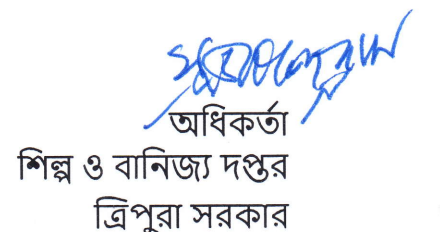 অধিকর্তা
শিল্প ও বানিজ্য দপ্তর
ত্রিপুরা সরকার